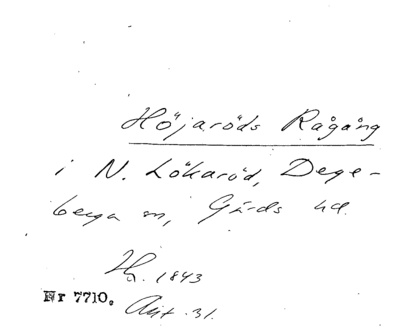 Höjaröds Rågång
i N. Lökaröd, Dege-
berga sn, Gärds hd.
Hg. 1843
Nr 7710. Akt. 31.